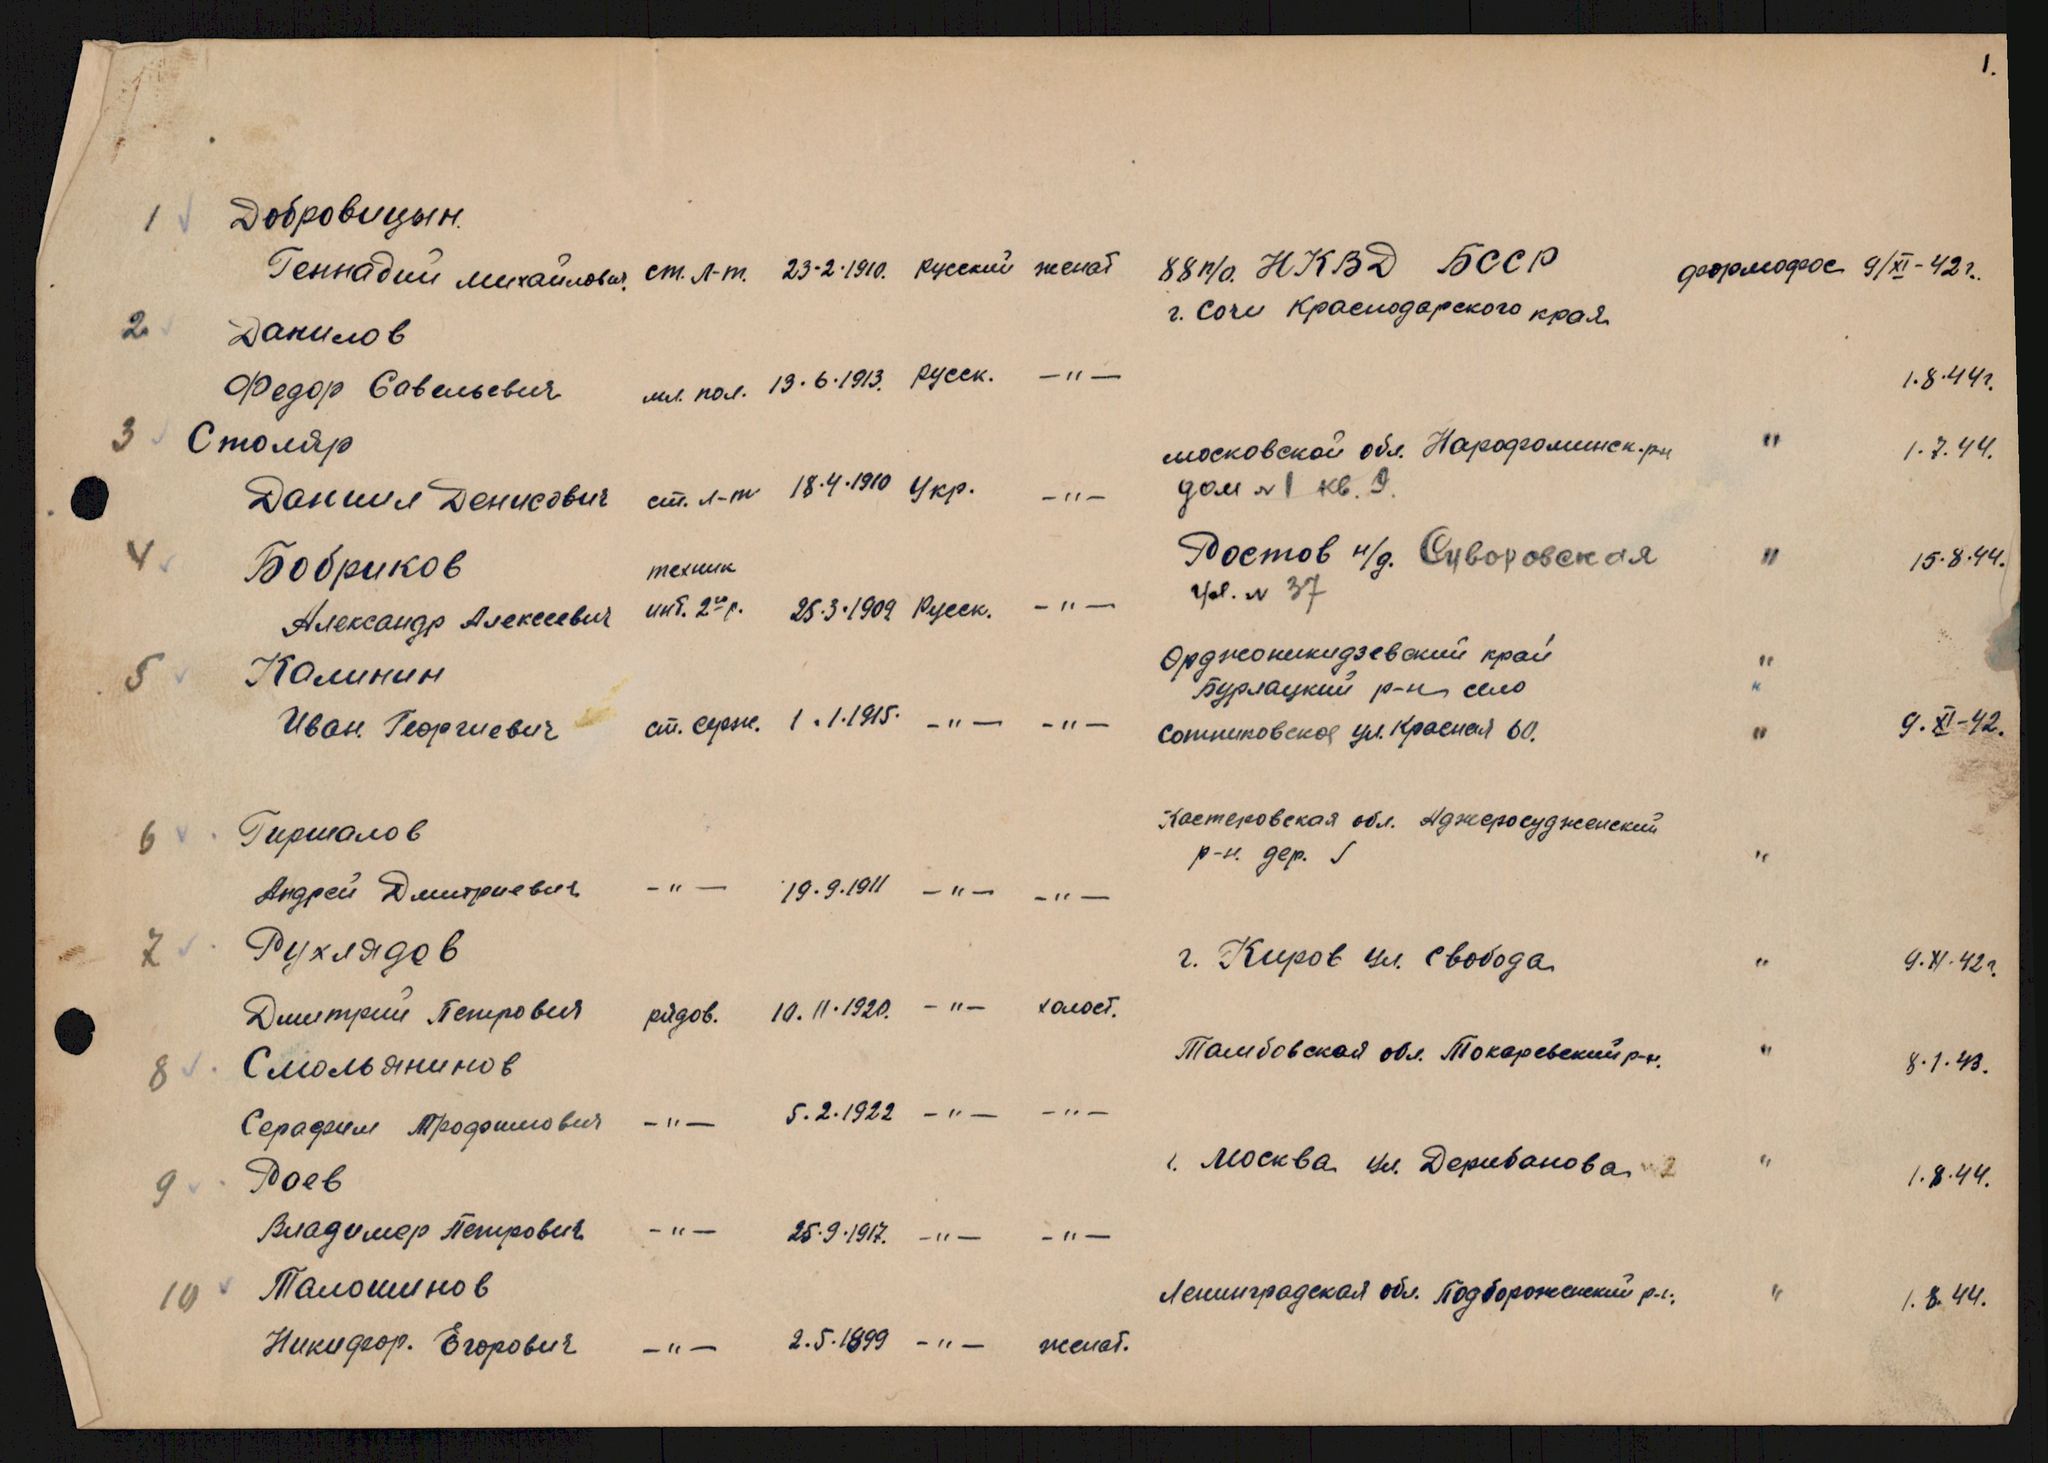 1.
1 Добровицын.
Геннадий Михайлович. ст. л-т. 23.2.1910. Русский женат 88 п/о. НКВД БССР формофос 9/XI-42 г.
г. Сочи Краснодарского края
2 Данилов
Федор Савельевич мл. пол. 13.6.1913. Русск. —"— 1.8.44 г.
3 Столяр московской обл. Нарофоминск. р-н " 1.7.44.
Даниил Денисович ст. л-т 18.4.1910 Укр. —"— дом № 1 кв. 9.
4 Бобриков техник Ростов н/д. Суворовская " 15.8.44.
Александр Алексеевич инт. 2го р. 25.3.1909 Русск. —"— ул. № 37
5 Калинин Орджоникидзевский край "
Бурлацкий р-н село "
Иван. Георгиевич ст. серж. 1.1.1915. —"— —"— Сотниковское ул. Красная 60. " 9.XI-42.
6 Гиршалов обл. Аджеросудженский
р-н. дер. "
Андрей Дмитриевич —"— 19.9.1911 —"— —"—
7 Рухлядев г. Киров ул. Свобода " 9.XI.42 г.
Дмитрий Петрович рядов. 10.11.1920. —"— холост.
8 Смольянинов Тамбовская обл. Токаревский р-н. " 8.1.43.
Серафим Трофимович —"— 5.2.1922 —"— —"—
9 Роев г. Москва ул. Дерибанова " 1.8.44.
Владимер Петрович —"— 25.9.1917. —"— —"—
10 Талошинов Ленинградская обл. Подбороженский р-н. " 1.8.44.
Никифор. Егорович —"— 2.5.1899 —"— женат.